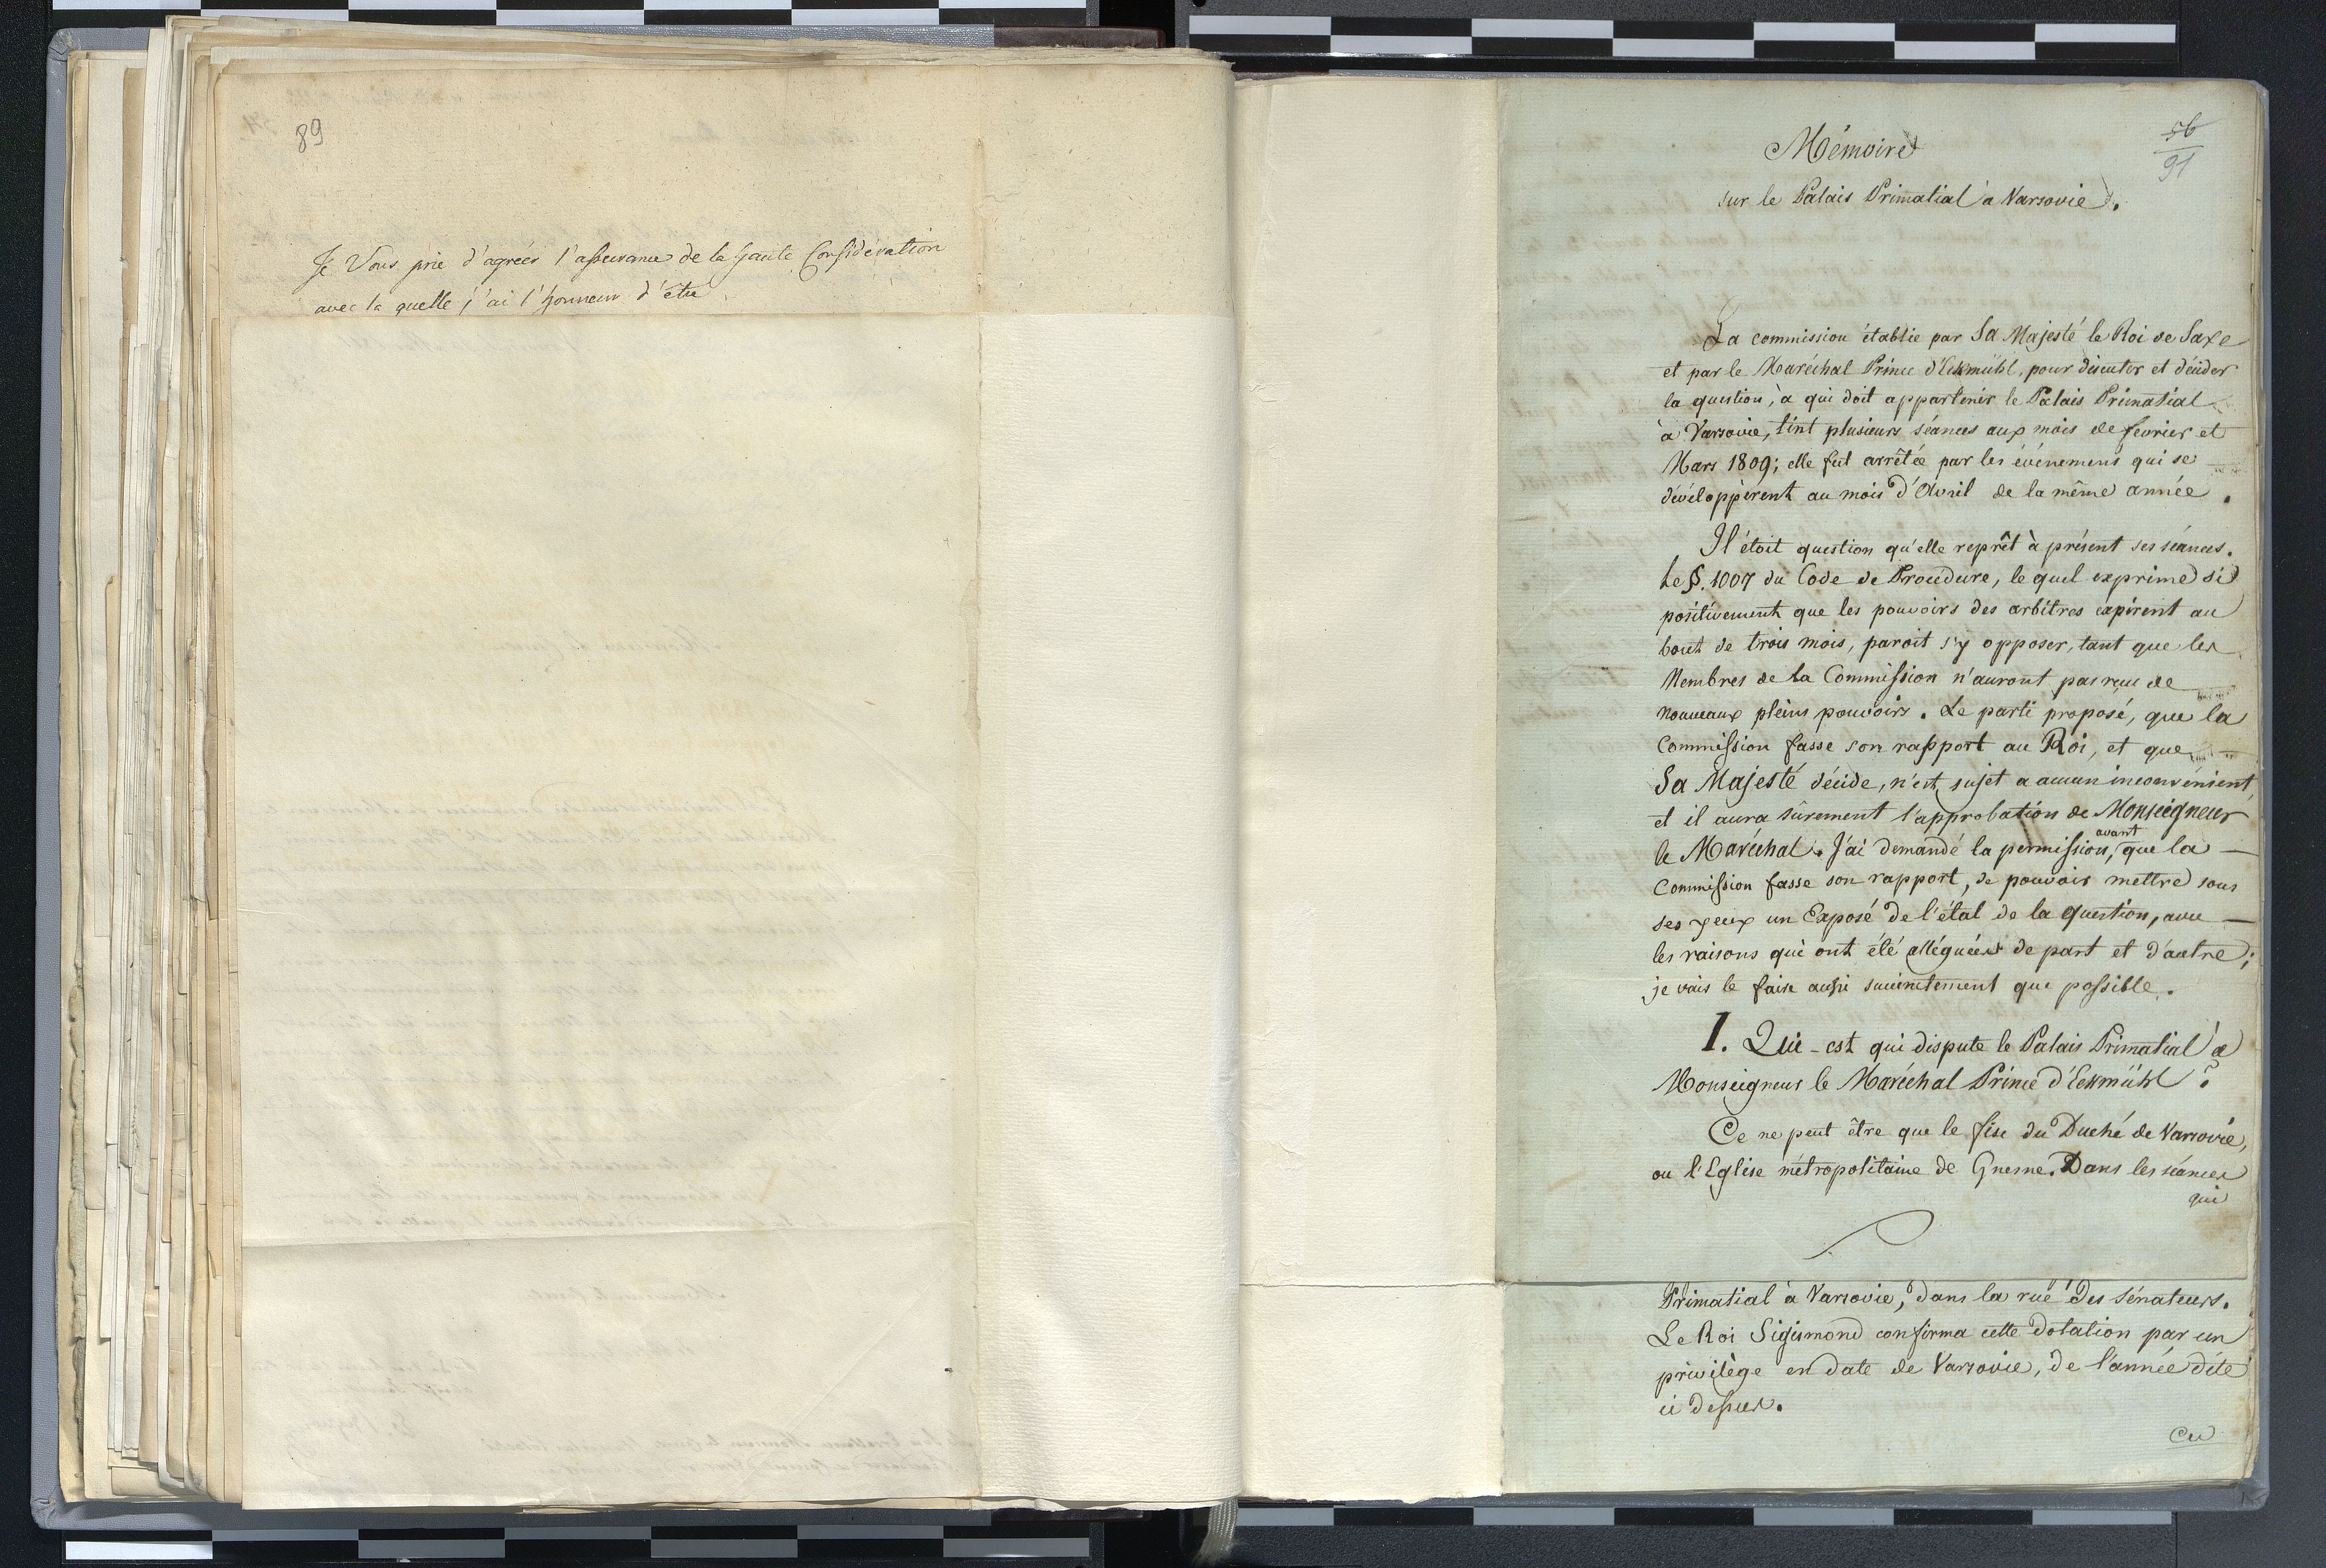 89
Je Vous prie d'agréer l'assurance de la haute Considération
avec la quelle j'ai l'honneur d'être
56
91
Mémoire
sur le Palais Primatial à Varsovie.
La commission établie par Sa Majesté le Roi de Saxe
et par le Maréchal Prince d'Eckmühl, pour discuter et décider
la question, à qui doit appartenir le Palais Primatial
à Varsovie, tint plusieurs séances aux mois de fevrier et
Mars 1809; elle fut arrêtée par les événemens qui se
dévéloppèrent au mois d'Avril de la même année.
Il étoit question qu'elle reprêt à présent ses séances.
Le §. 1007 du Code de Procédure, le quel exprime si
positivement que les pouvoirs des arbitres expirent au
bout de trois mois, paroit s'y opposer, tant que les
Membres de la Commission n'auront pas reçu de
nouveaux pleins pouvoirs. Le parti proposé, que la
Commission fasse son rapport au Roi, et que
Sa Majesté décide, n'est sujet a aucun inconvénient,
et il aura sûrement l'approbation de Monseigneur
le Maréchal. J'ai demandé la permission, avant que la
Commission fasse son rapport, de pouvoir mettre sous
ses yeux un Exposé de l'état de la question, avec
les raisons qui ont été alléguées de part et d'autre;
je vais le faire aussi succinctement que possible.
I. Qui-est qui dispute le Palais Primatial à
Monseigneur le Maréchal Prince d'Eckmühl?
Ce ne peut être que le fisc du Duché de Varsovie,
ou l'Eglise métropolitaine de Gnesne. Dans les séances
qui
Primatial à Varsovie, dans la rue des Sénateurs.
Le Roi Sigismond confirma cette dotation par un
privilège en date de Varsovie, de l'année dite
ci dessus.
Ce